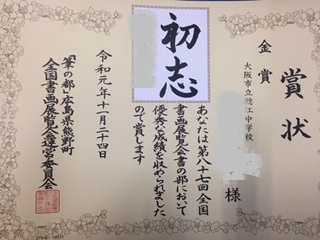 賞状
金賞
大阪市立
工中学校
様
初志
あなたは第八十七回全国
書画展覧会書の部において
優秀な成績を収められました
ので賞します
令和元年十一月二十四日
「筆の都」広島県熊野町
全国書画展覧会運営委員会